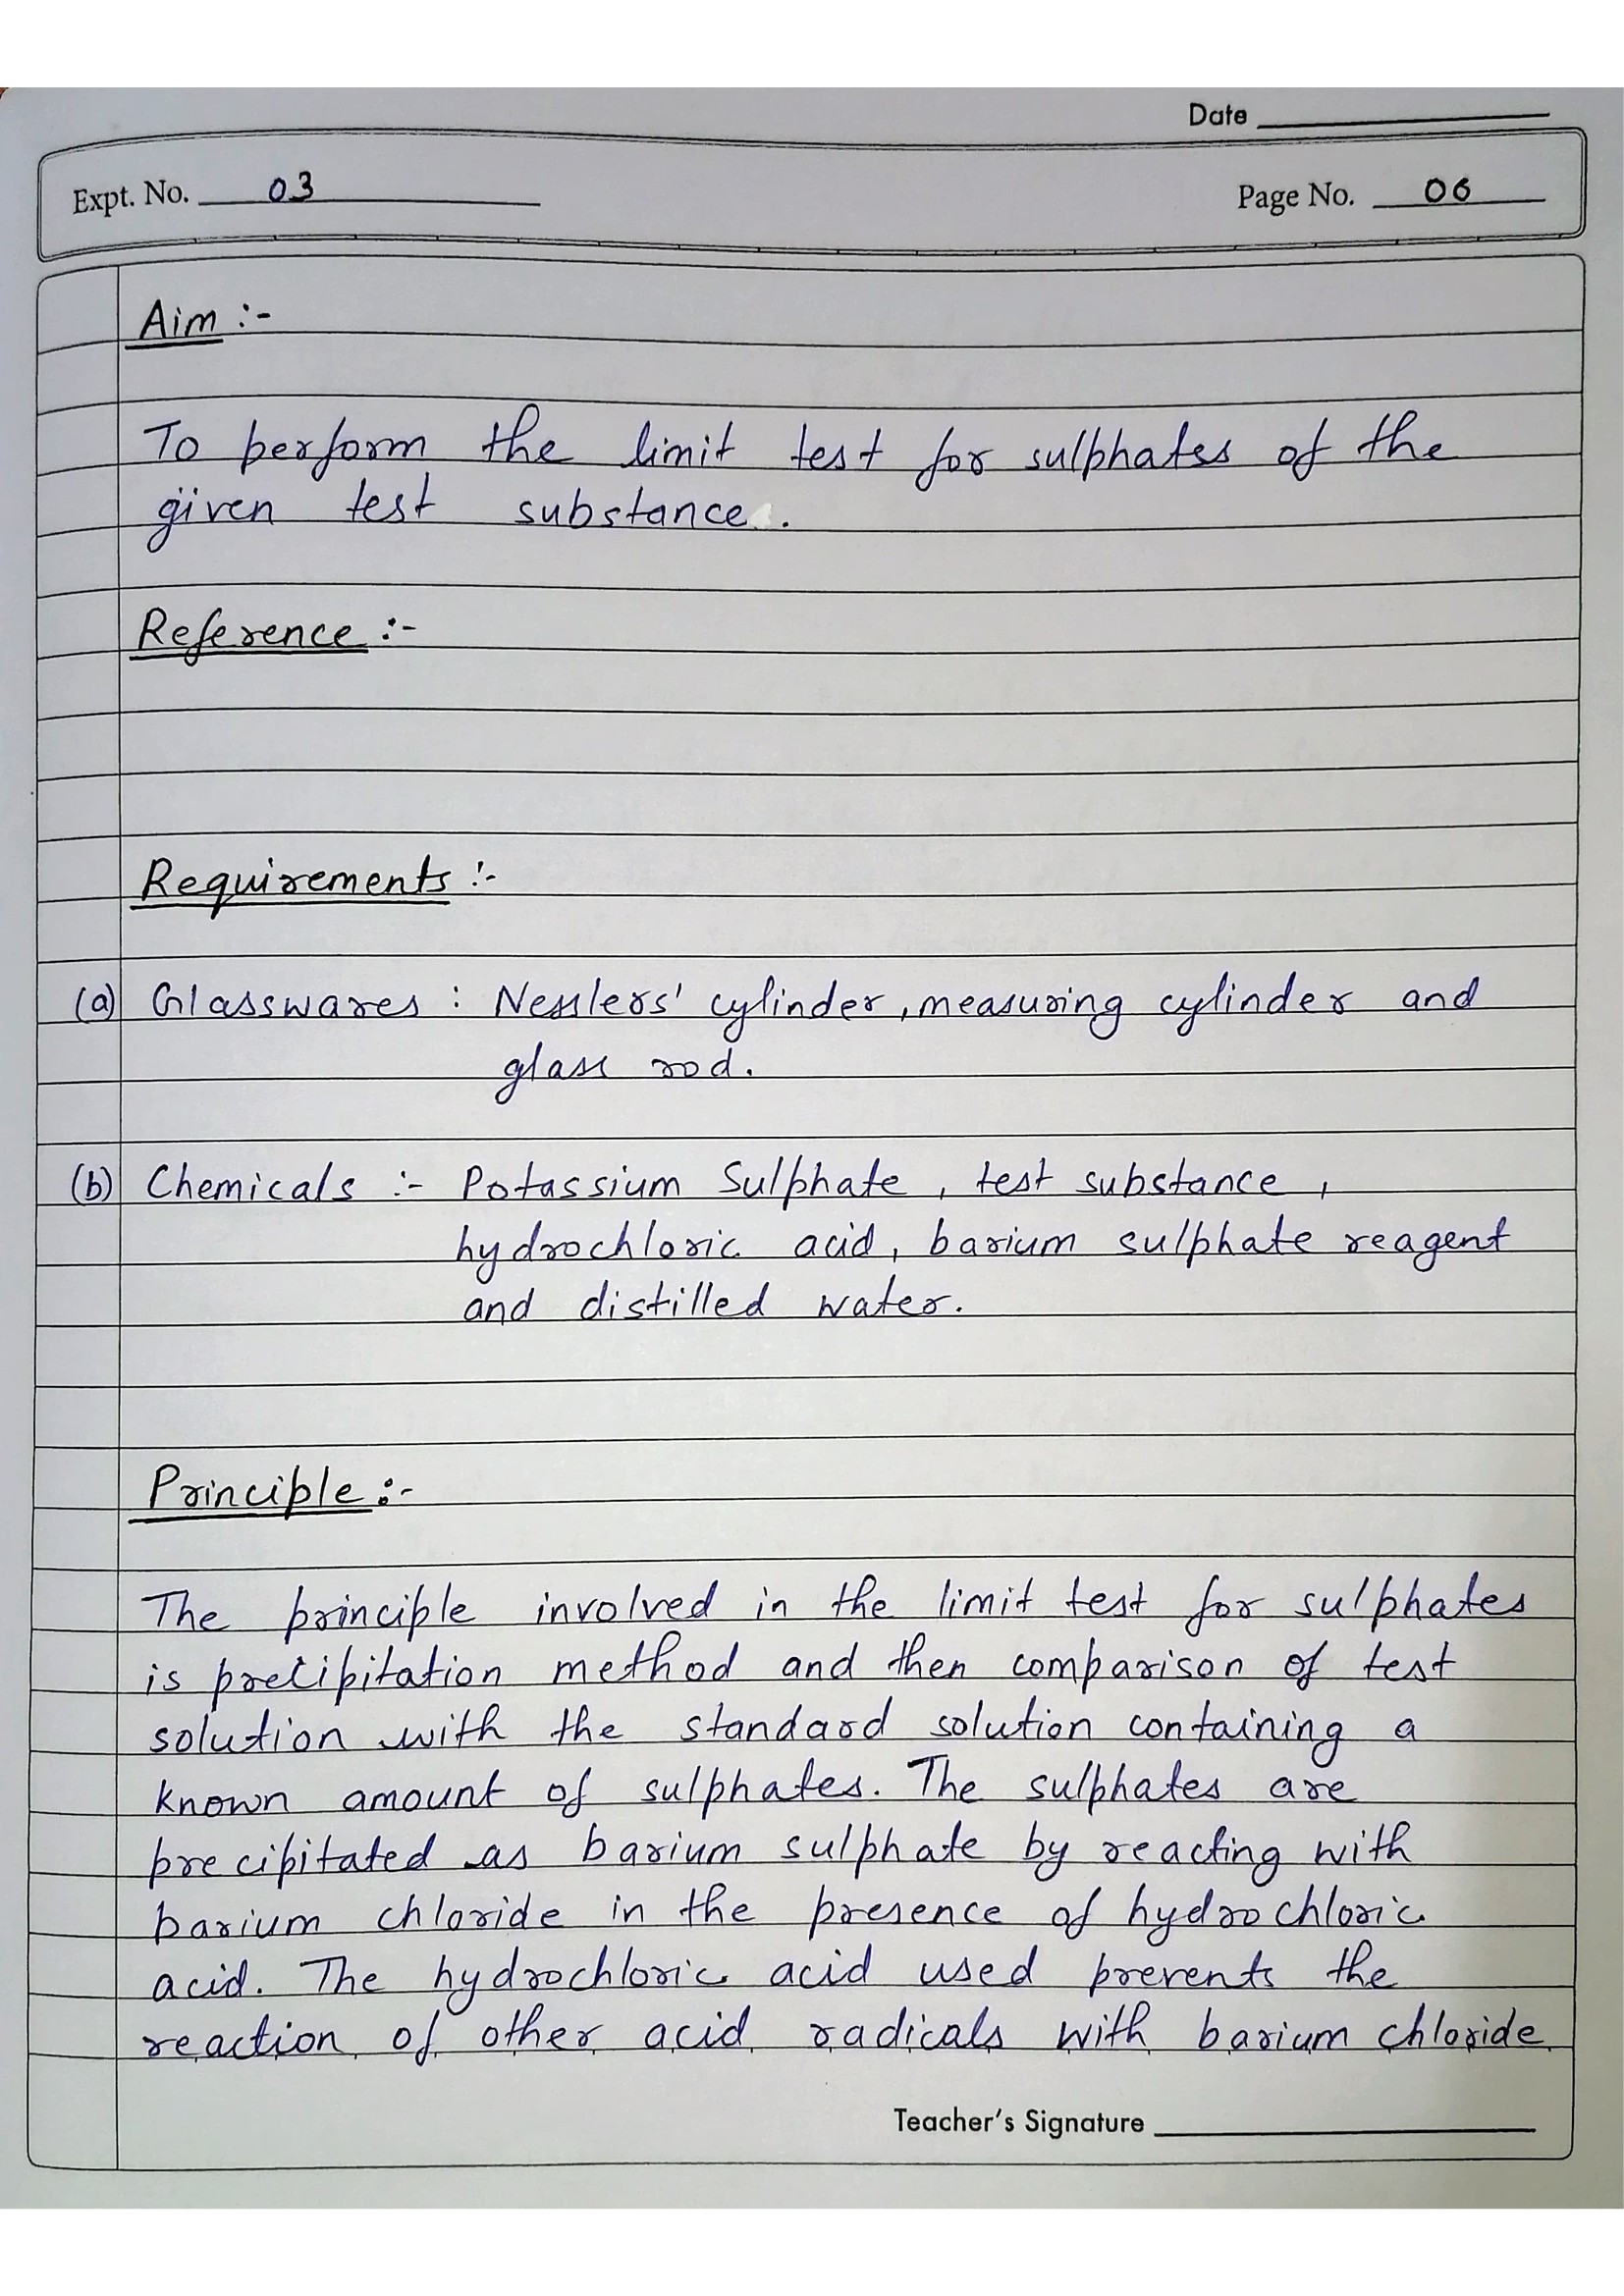 Date
Expt. No. 03
Page No. 06
Aim :-
To perform the limit test for sulphates of the
given test substance.
Reference :-
Requirements :-
(a) Glasswares : Nesslers' cylinder, measuring cylinder and
glass rod.
(b) Chemicals :- Potassium Sulphate, test substance,
hydrochloric acid, barium sulphate reagent
and distilled water.
Principle :-
The principle involved in the limit test for sulphates
is precipitation method and then comparison of test
solution with the standard solution containing a
known amount of sulphates. The sulphates are
precipitated as barium sulphate by reacting with
barium chloride in the presence of hydrochloric
acid. The hydrochloric acid used prevents the
reaction of other acid radicals with barium chloride.
Teacher's Signature